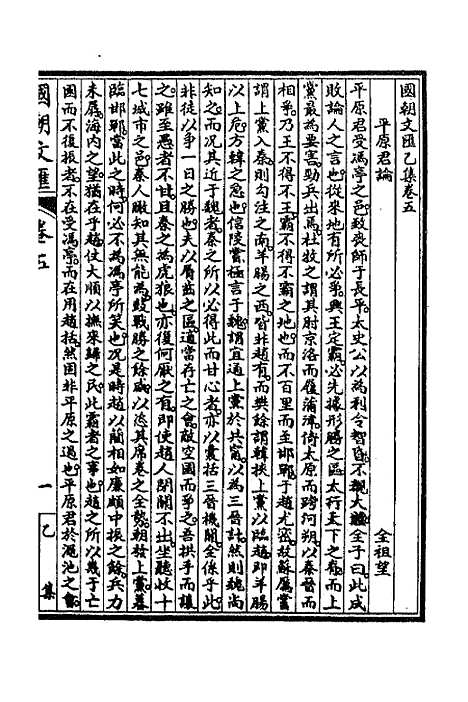 國朝文匯乙集卷五
平原君論
全祖望
平原君受馮亭之邑致喪師于長平太史公以為利令智昏不覩大體全子曰此成
敗論人之言也從來地有所必爭興王定霸必先據形勝之區太行天下之脊而上
黨最為要害勁兵出焉杜牧之謂其肘京洛而履蒲津倚太原而跨河朔以秦晉而
相爭乃王不得不王霸不得不霸之地也而不百里而至邯鄲于趙尤密故蘇厲嘗
謂上黨入秦則勾注之南羊腸之西皆非趙有而樊餘謂韓挾上黨以臨趙即羊腸
以上危方韓之急也信陵嘗極言于魏謂宜通上黨於共甯以為三晉計然則魏尚
知之而況其近于魏者秦之所以必得此而甘心者亦以黨括三晉機關全係乎此
非徒以一日之勝也夫以脣齒之區適當存亡之會敵空國而爭之吾拱手而讓
之雖至愚者不甘且秦之為虎狼也亦復何厭之有即使趙人閉關不出坐聽收十
七城市之邑秦人瞰知其無能為鼓戰勝之餘威以恣其席卷之全勢朝發上黨暮
臨邯鄲當此之時何必不為馮亭所笑也况是時趙以藺相如廉頗中振之餘兵力
未孱海內之望猶在乎趙仗大順以撫來歸之民此霸者之事也趙之所以幾于亡
國而不復振者不在受馮亭而在用趙括然固非平原之過也平原君於澠池之會
國朝文匯
卷五
一
乙集